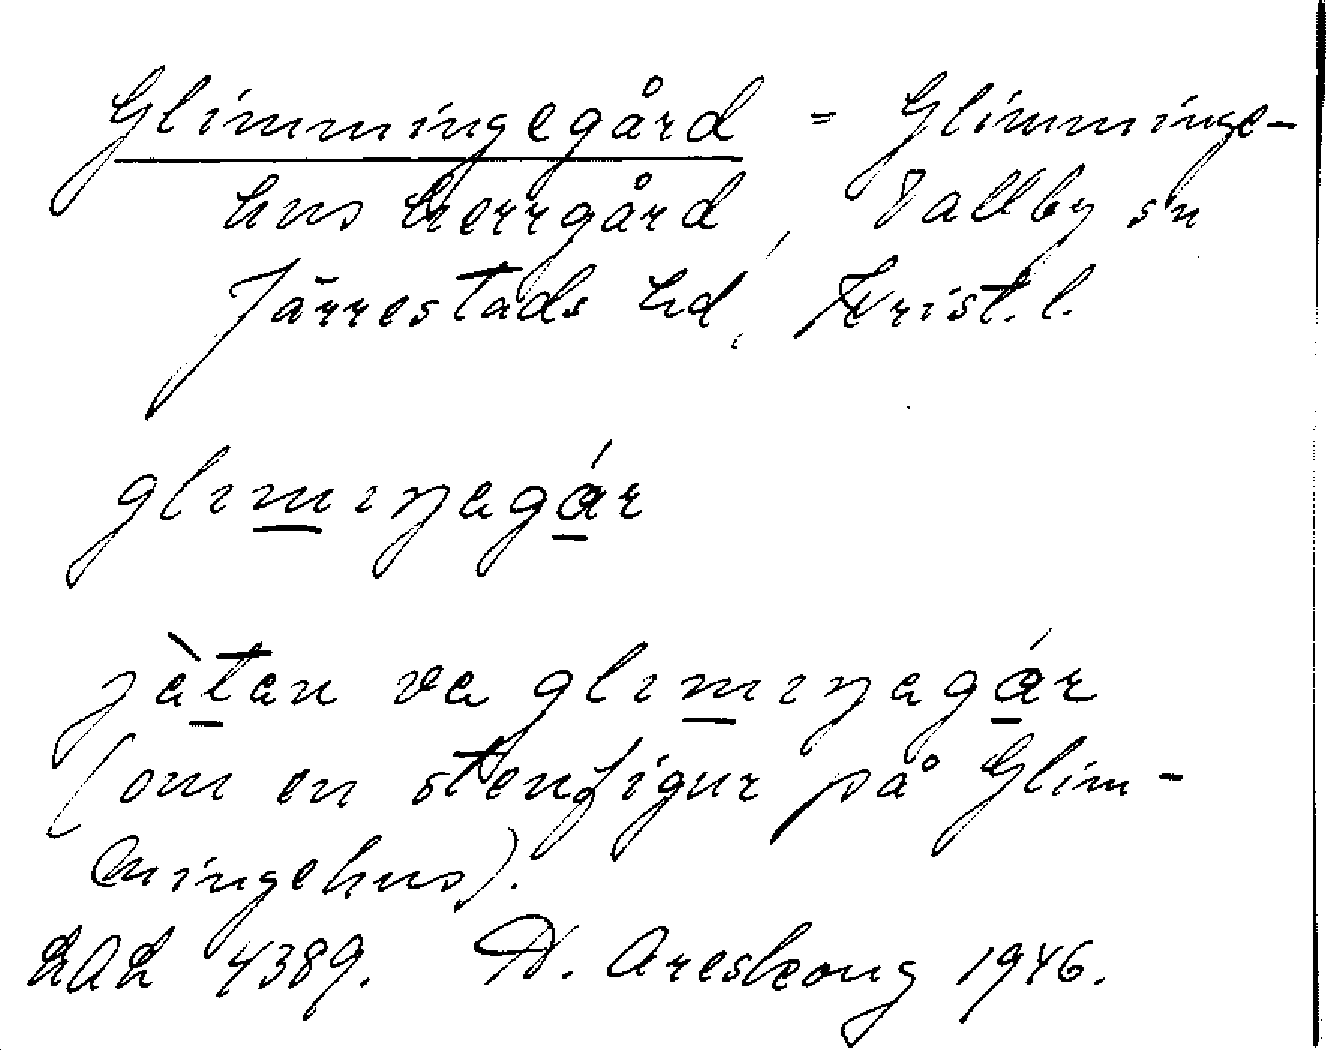 Glimmingegård = Glimminge-
hus herrgård, Vallby sn
Järrestads hd, Krist. l.
glimiŋagár
jàtan va glimiŋagár
(om en stenfigur på Glim-
mingehus).
LAL 4389. Areskoug 1946.